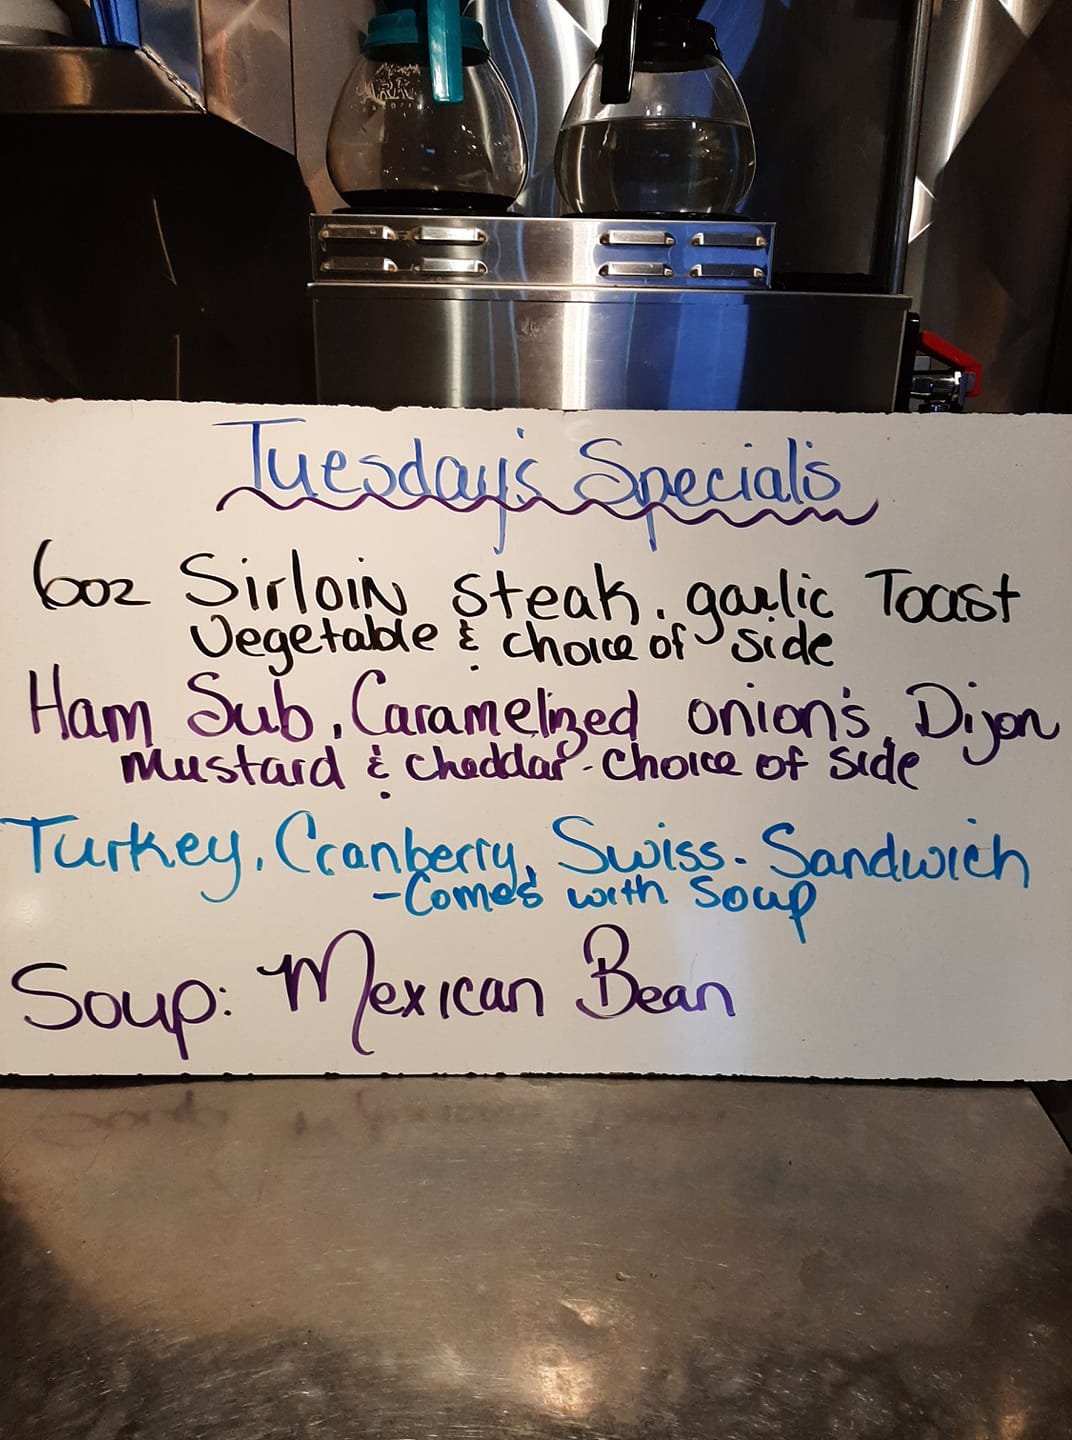 Tuesday's Special's
6oz Sirloin steak. garlic Toast
Vegetable & choice of side
Ham Sub, Caramelized onion's, Dijon
Mustard & cheddar - choice of side
Turkey, Cranberry, Swiss. Sandwich
- Comes with soup
Soup: Mexican Bean